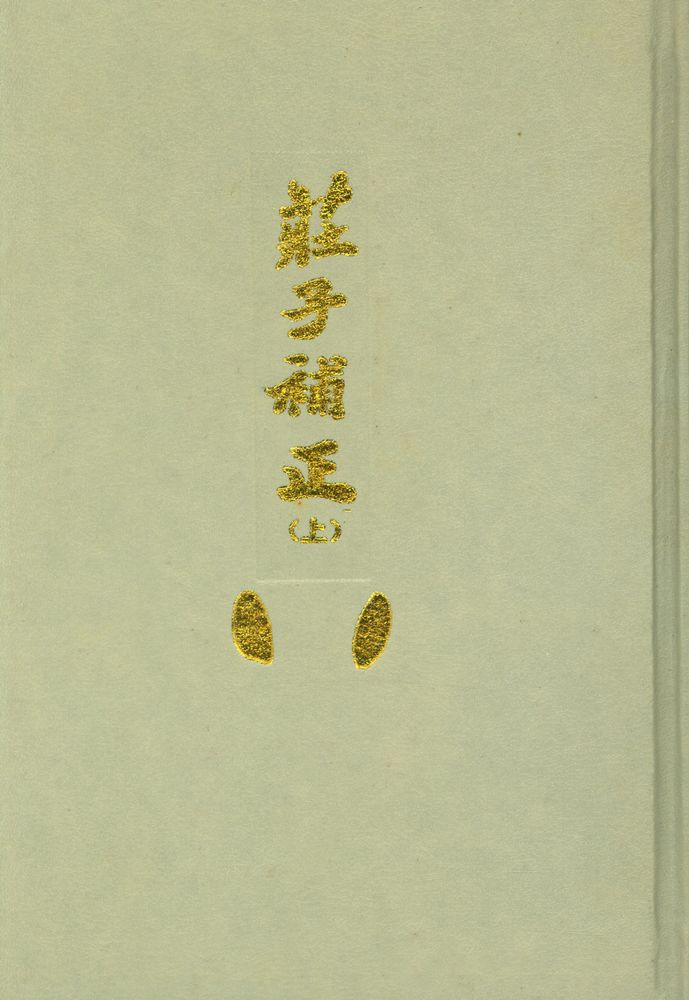 莊子補正
(上)